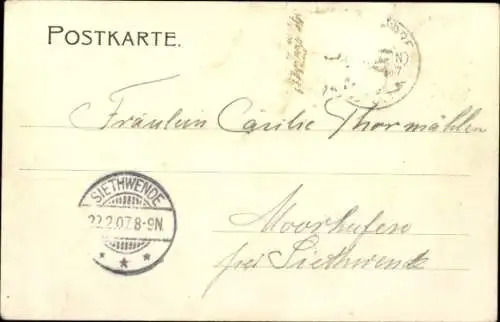 POSTKARTE.
Fräulein Cäcilie Thormählen
SIETHWENDE
22.2.07.8-9N.
* * *
Moorhufen
bei Siethwende